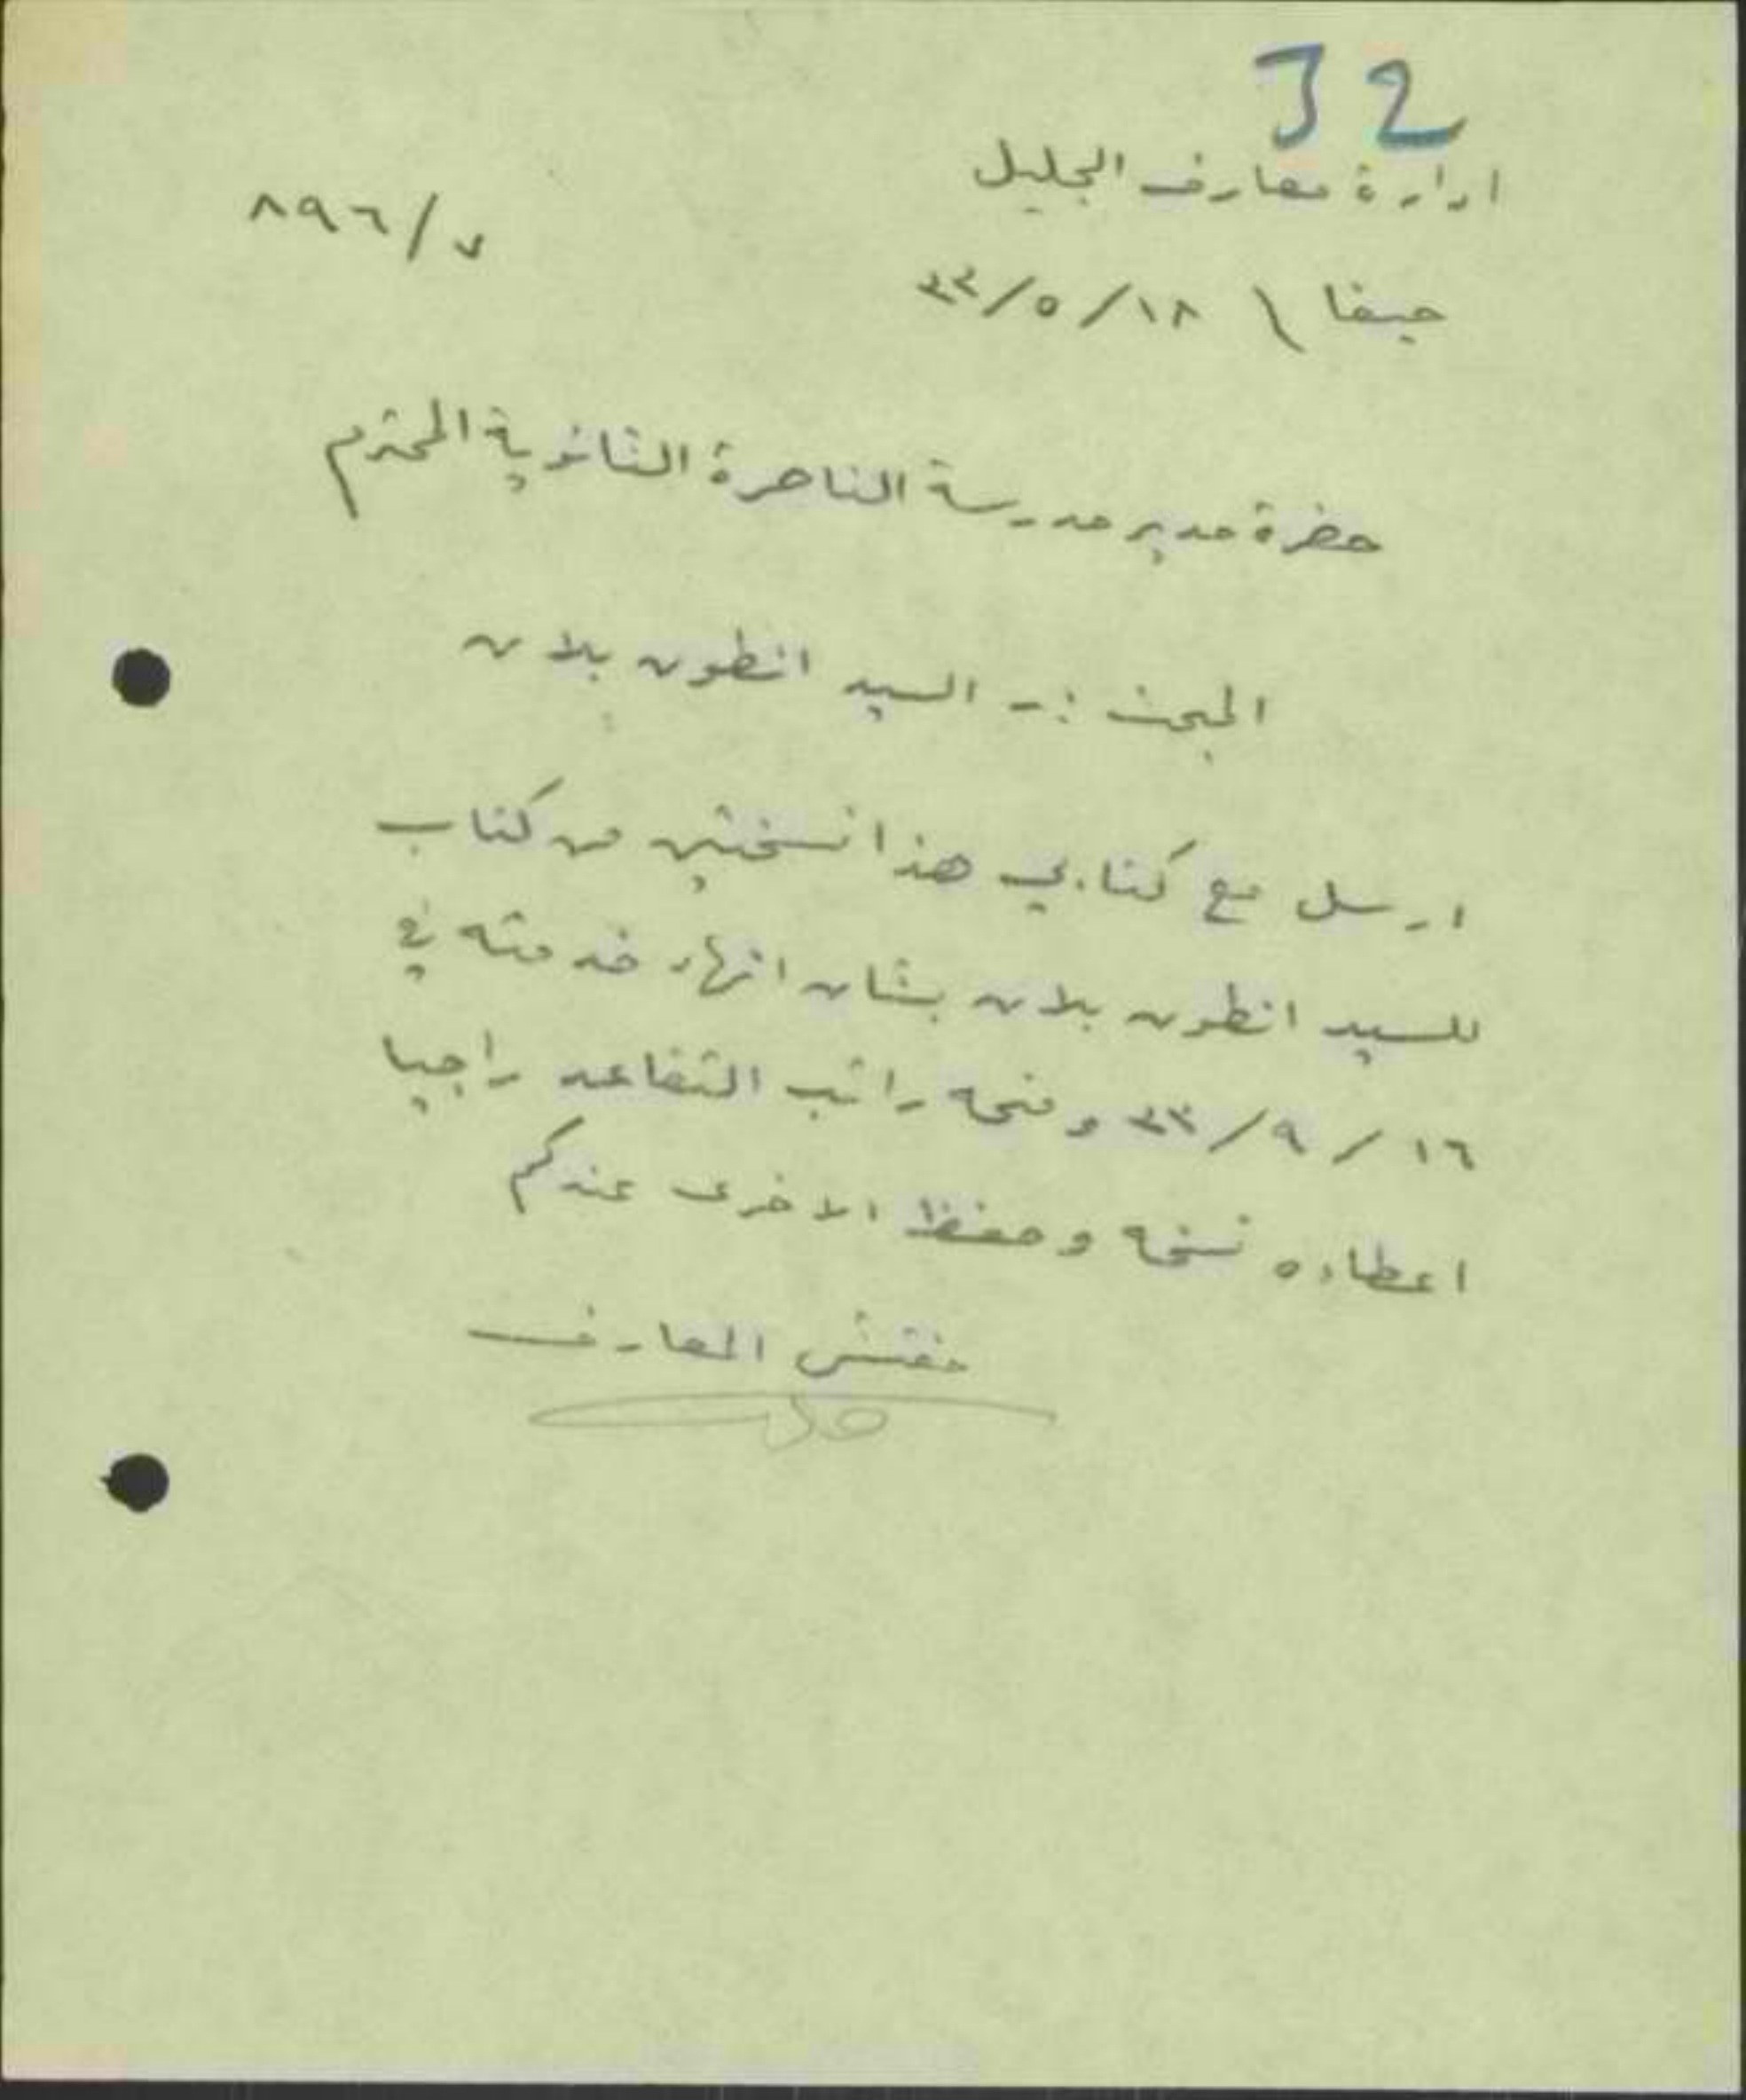 32
ادارة معارف الجليل
٧/٨٩٦
حيفا \ ١٨/٥/٤٣
حضرة مدير مدرسة الناصرة الثانوية المحترم
المبحث :- السيد انطون بلان
ارسل مع كتابي هذا نسختين من كتاب
للسيد انطون بلان بشان انهاء خدمته في
١٦/٩/٤٣ ومنحه راتب التقاعد راجيا
اعطاءه نسخه وحفظ الاخرى عندكم
مفتش المعارف